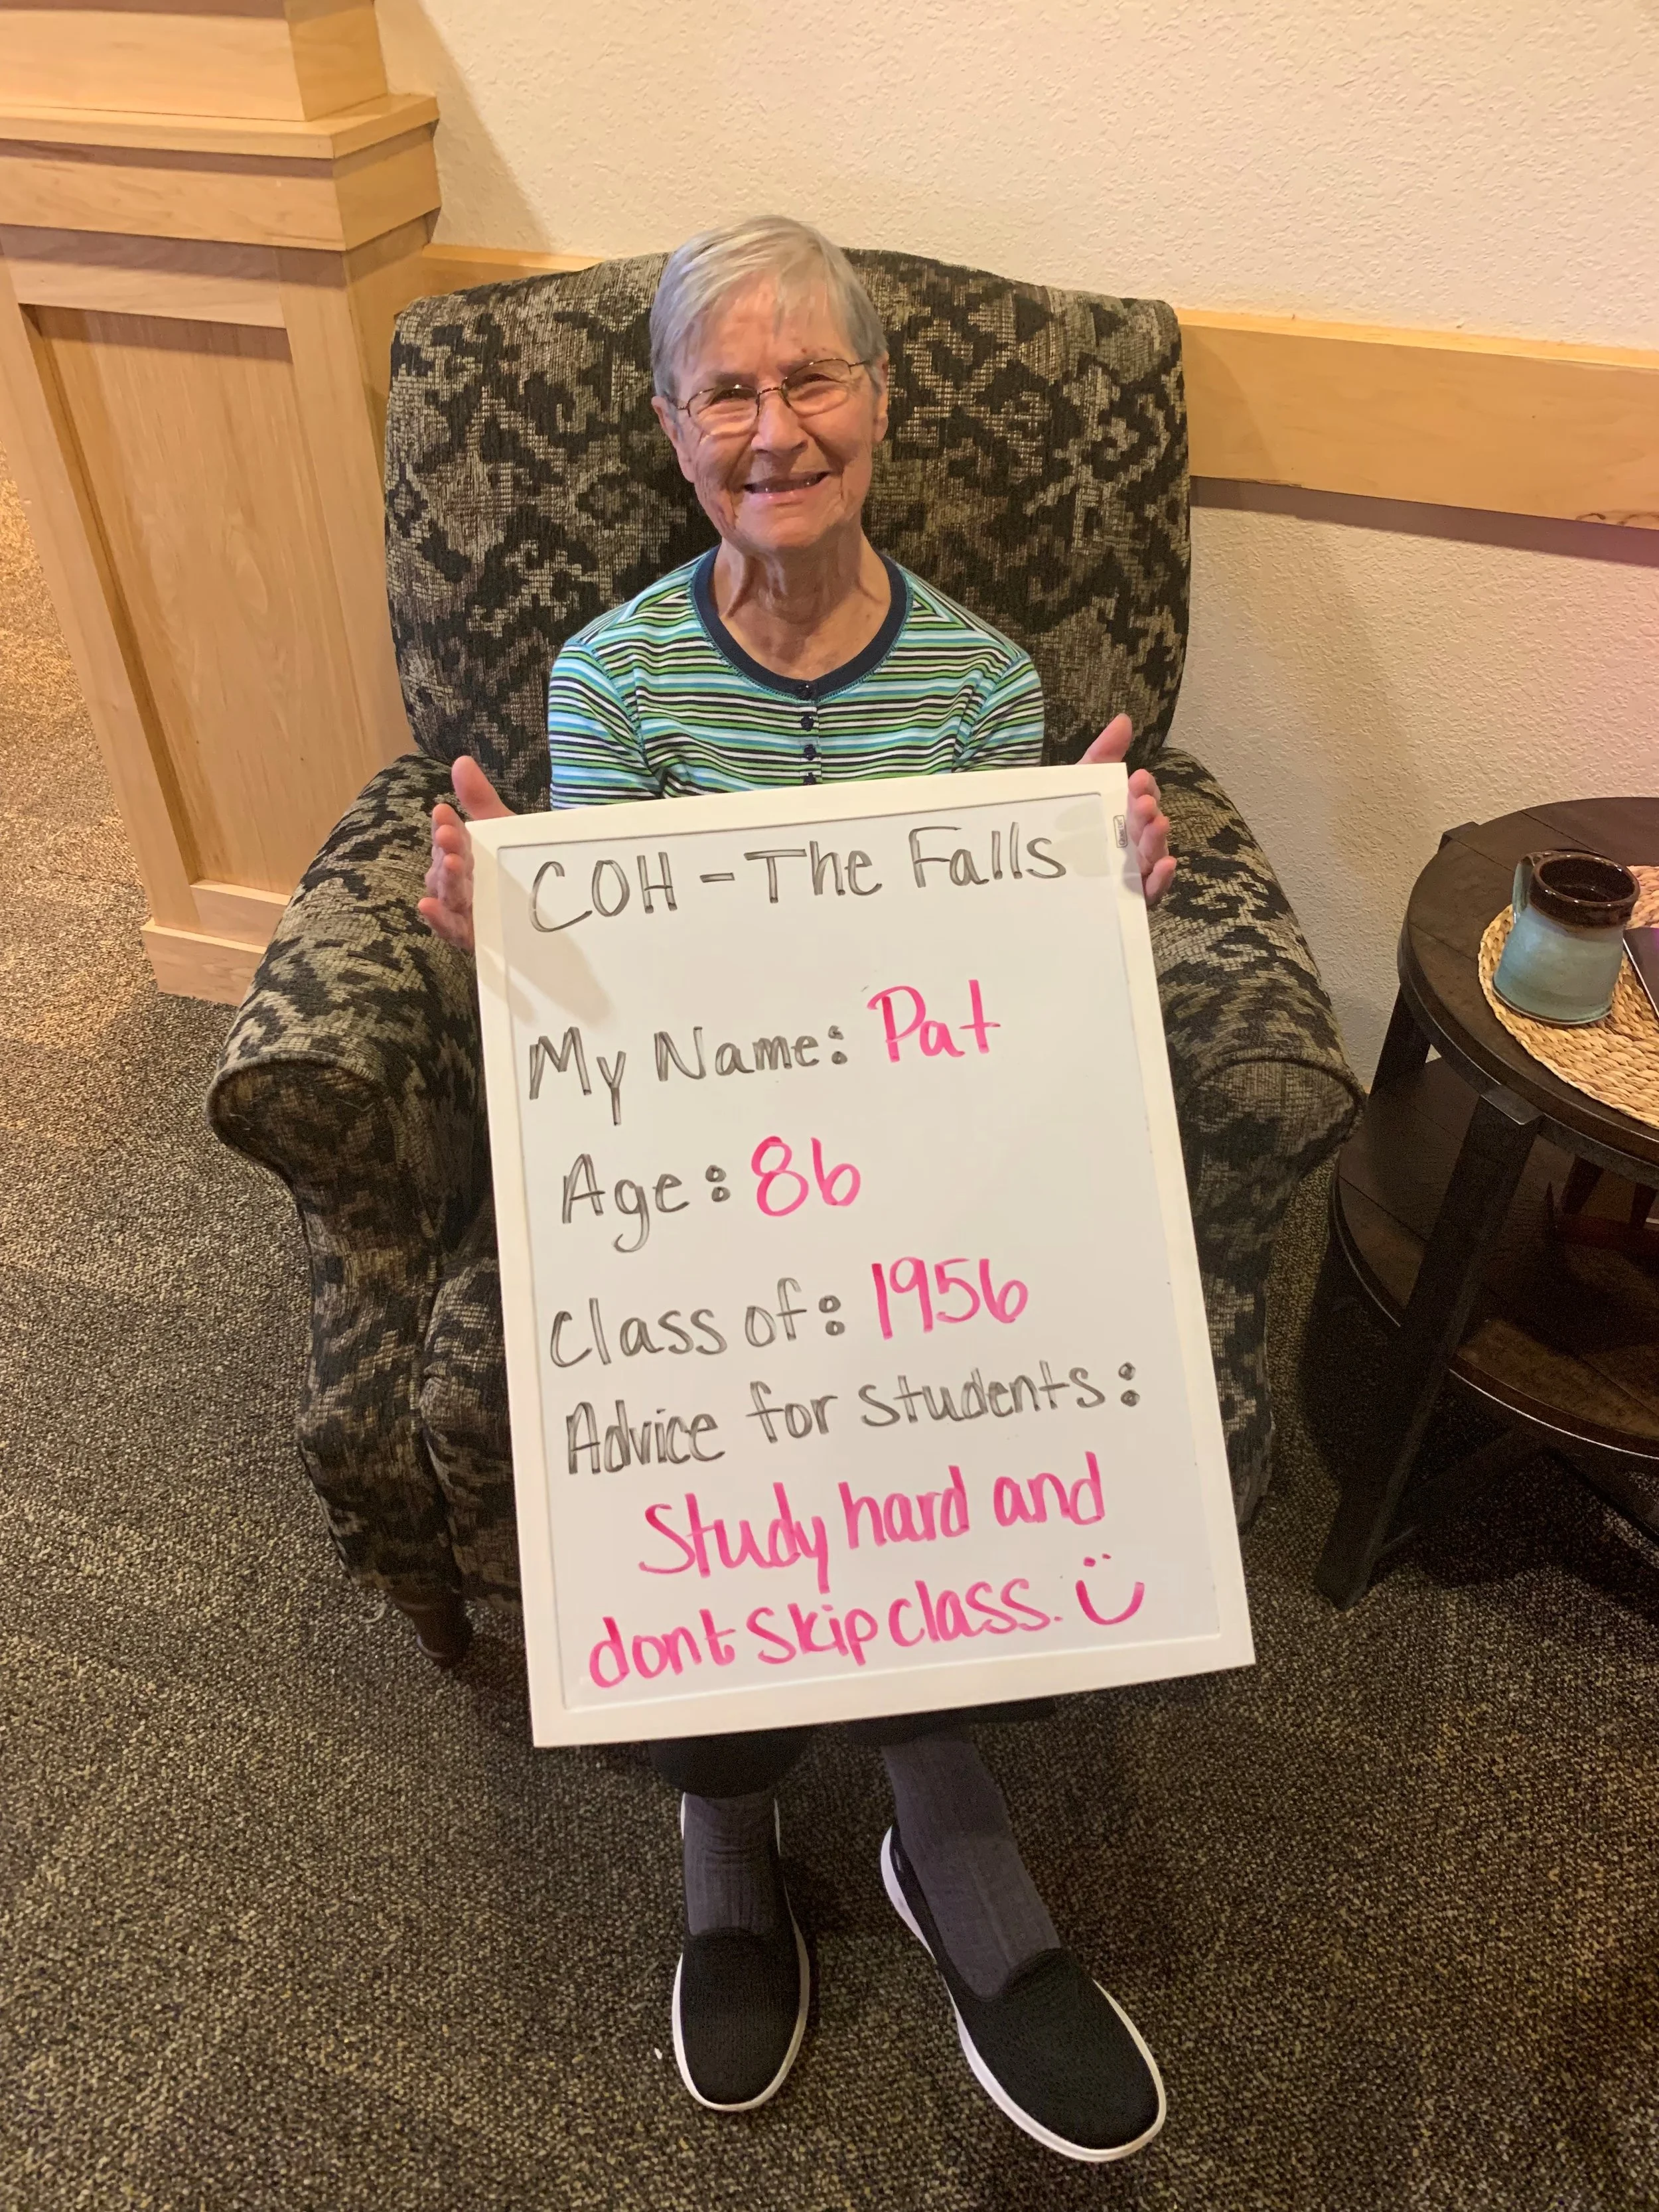 COH - The Falls
My Name: Pat
Age: 86
Class of: 1956
Advice for students:
Study hard and
dont skip class. Ü